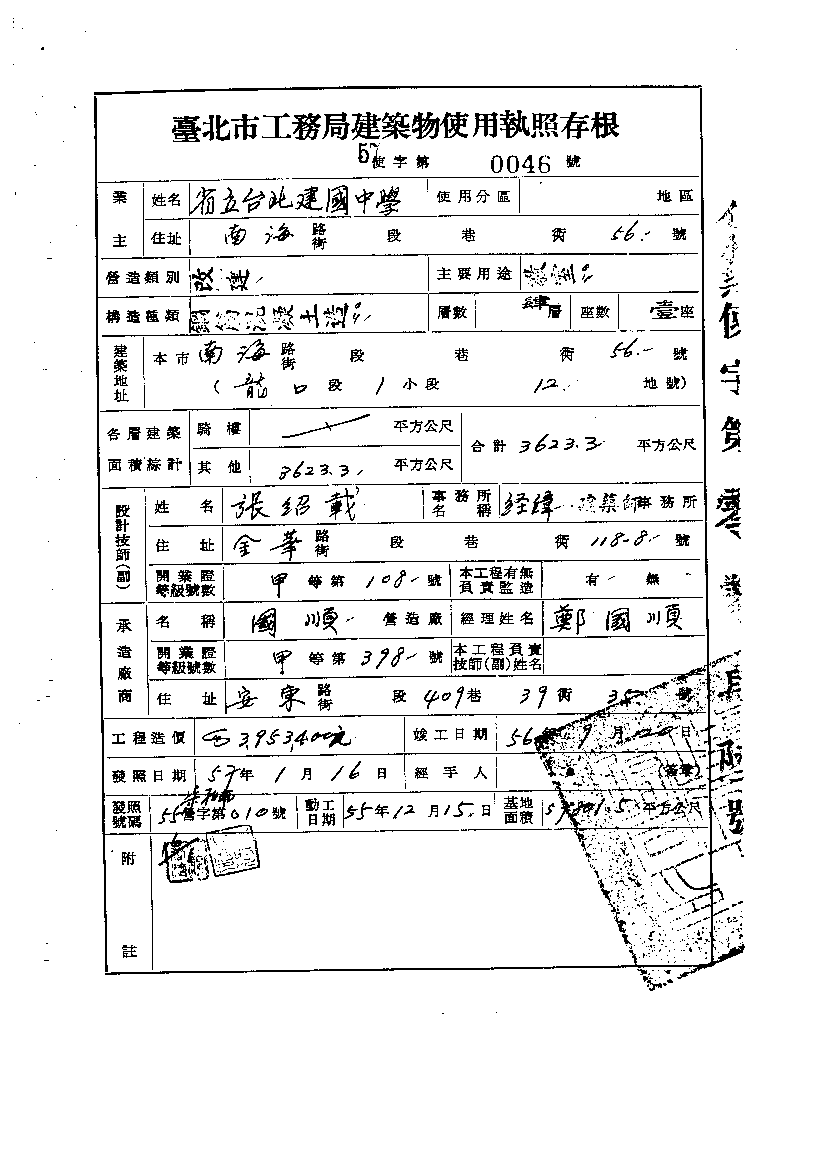 臺北市工務局建築物使用執照存根
57使字第 0046 號
業主 姓名 省立台北建國中學 使用分區 地區
住址 南海 路街 段 巷 衖 56 號
營造類別 改建 主要用途 教室
構造種類 鋼筋混凝土造 層數 肆層 座數 壹座
建築地址 本市 南海 路街 段 巷 衖 56 號
(龍口段 1 小段 12 地號)
各層建築面積綜計 騎樓 平方公尺 合計 3623.3 平方公尺
其他 3623.3 平方公尺
設計技師(副) 姓名 張紹載 事務所名稱 經緯 建築師事務所
住址 金華 路街 段 巷 衖 118-8 號
開業證等級號數 甲等第 108 號 本工程有無負責監造 有 無
承造廠商 名稱 國順 營造廠 經理姓名 鄭國順
開業證等級號數 甲等第 398 號 本工程負責技師(副)姓名
住址 安東 路街 段 409 巷 39 衖 35 號
工程造價 3,953,400元 竣工日期 56年 9月 20日
發照日期 57年 1月 16日 經手人 (簽章)
發照號碼 55營字第010號 動工日期 55年12月15日 基地面積 平方公尺
附註
使字第零
號